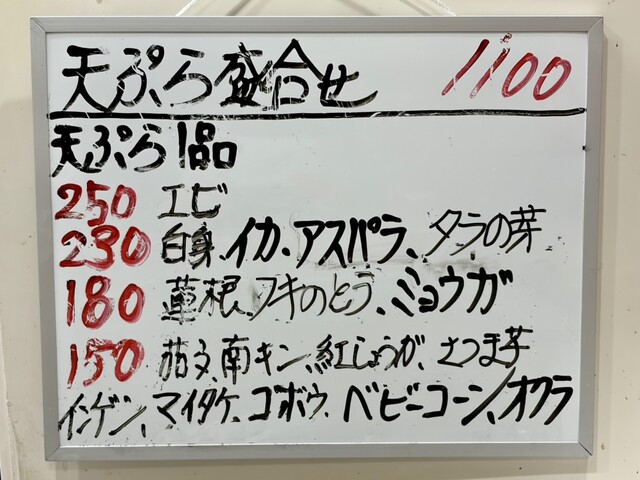 天ぷら盛合せ 1100
天ぷら1品
250 エビ
230 白身、イカ、アスパラ、タラの芽
180 蓮根、フキのとう、ミョウガ
150 茄子、南キン、紅しょうが、さつま芋
インゲン、マイタケ、ゴボウ、ベビーコーン、オクラ